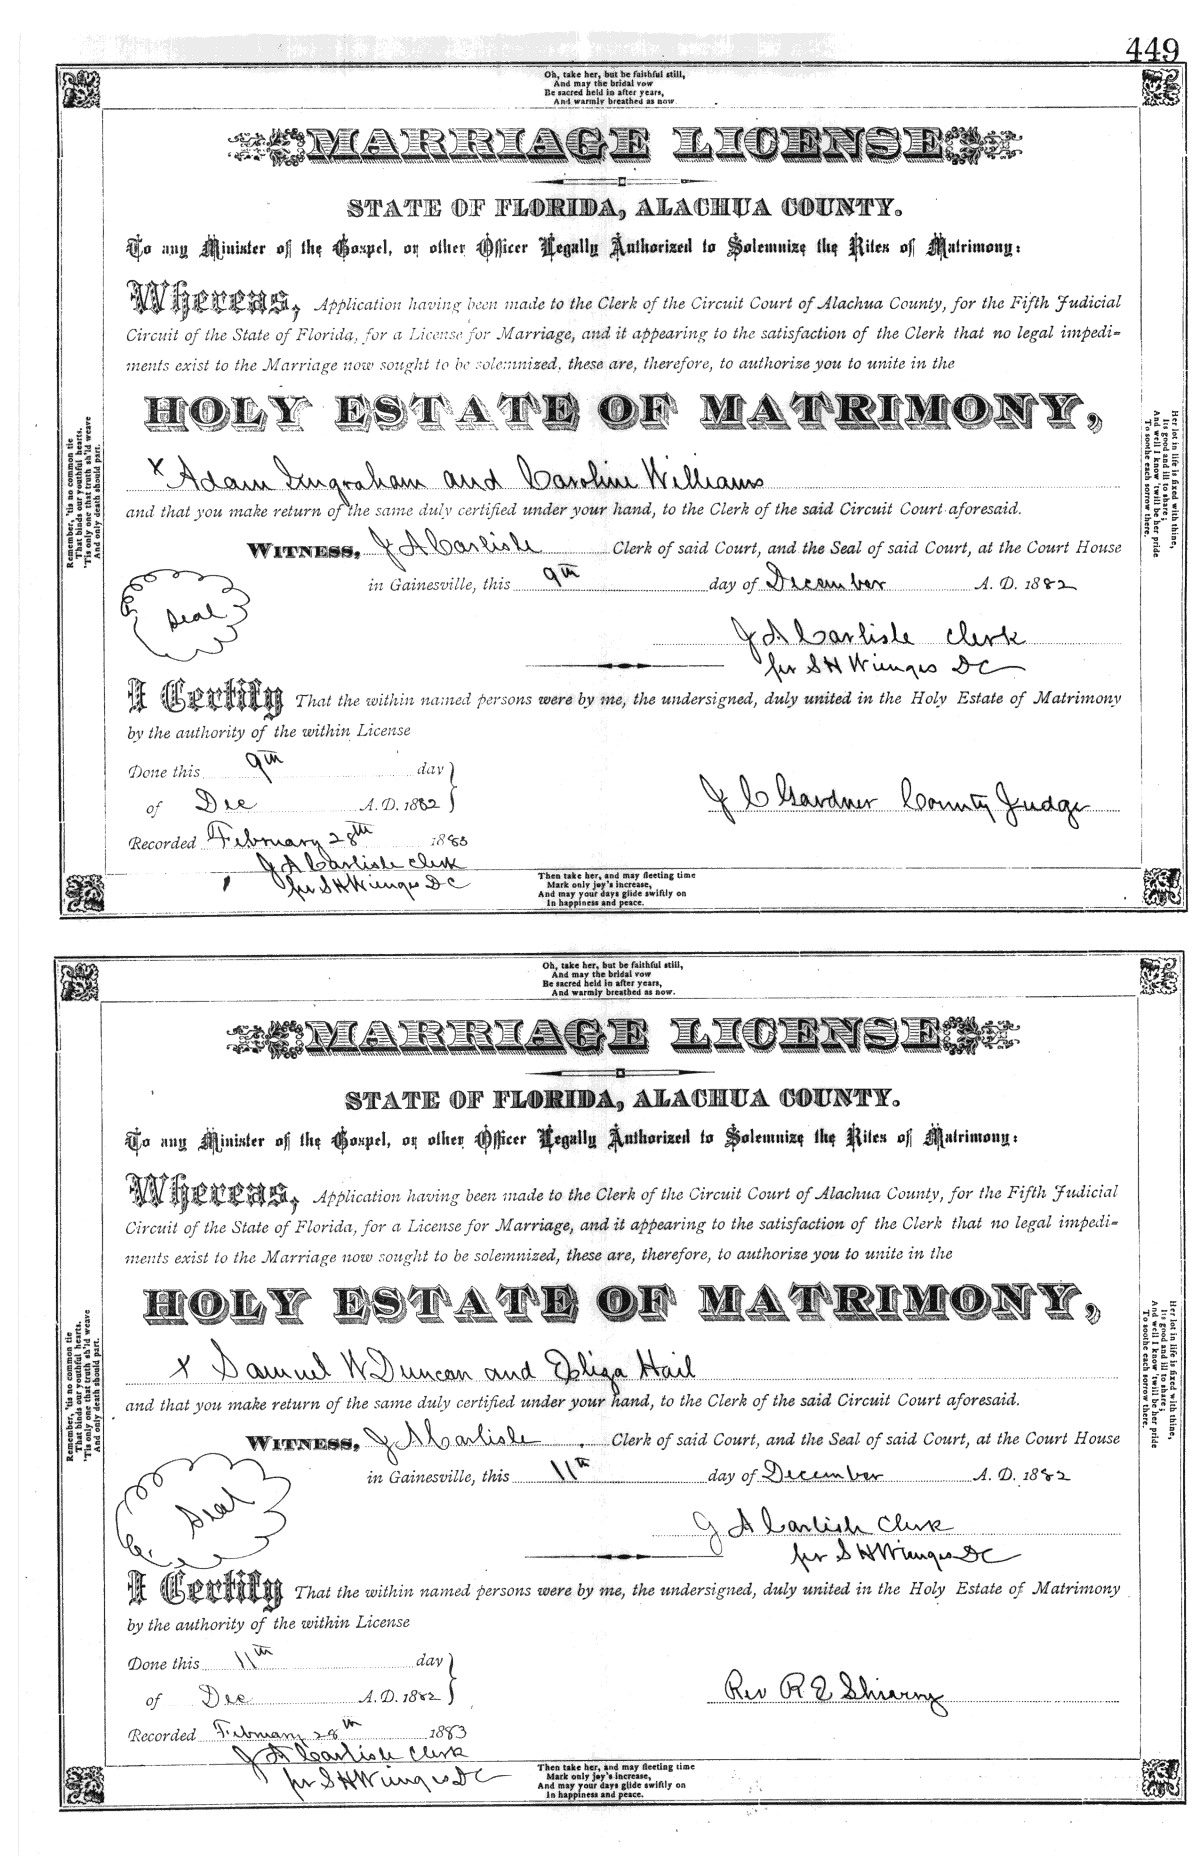 449
Oh, take her, but be faithful still,
And may the bridal vow
Be sacred held in after years,
And warmly breathed as now.
MARRIAGE LICENSE
STATE OF FLORIDA, ALACHUA COUNTY.
To any Minister of the Gospel, or other Officer Legally Authorized to Solemnize the Rites of Matrimony:
Whereas, Application having been made to the Clerk of the Circuit Court of Alachua County, for the Fifth Judicial
Circuit of the State of Florida, for a License for Marriage, and it appearing to the satisfaction of the Clerk that no legal impedi-
ments exist to the Marriage now sought to be solemnized, these are, therefore, to authorize you to unite in the
HOLY ESTATE OF MATRIMONY,
x Adam Ingraham and Caroline Williams
and that you make return of the same duly certified under your hand, to the Clerk of the said Circuit Court aforesaid.
WITNESS, J A Carlisle Clerk of said Court, and the Seal of said Court, at the Court House
in Gainesville, this 9th day of December A. D. 1882
Seal
J A Carlisle Clerk
per S H Wienges DC
I Certify That the within named persons were by me, the undersigned, duly united in the Holy Estate of Matrimony
by the authority of the within License
Done this 9th day
of Dec A.D. 1882
J C Gardner County Judge
Recorded February 28th 1883
J A Carlisle Clerk
per S H Wienges DC
Remember, 'tis no common tie
That binds our youthful hearts.
'Tis only one that truth sh'ld weave
And only death should part.
Her lot in life is fixed with thine,
Its good and ill to share;
And well I know 'twill be her pride
To soothe each sorrow there.
Then take her, and may fleeting time
Mark only joy's increase,
And may your days glide swiftly on
In happiness and peace.
Oh, take her, but be faithful still,
And may the bridal vow
Be sacred held in after years,
And warmly breathed as now.
MARRIAGE LICENSE
STATE OF FLORIDA, ALACHUA COUNTY.
To any Minister of the Gospel, or other Officer Legally Authorized to Solemnize the Rites of Matrimony:
Whereas, Application having been made to the Clerk of the Circuit Court of Alachua County, for the Fifth Judicial
Circuit of the State of Florida, for a License for Marriage, and it appearing to the satisfaction of the Clerk that no legal impedi-
ments exist to the Marriage now sought to be solemnized, these are, therefore, to authorize you to unite in the
HOLY ESTATE OF MATRIMONY,
x Samuel W Duncan and Eliza Hail
and that you make return of the same duly certified under your hand, to the Clerk of the said Circuit Court aforesaid.
WITNESS, J A Carlisle Clerk of said Court, and the Seal of said Court, at the Court House
in Gainesville, this 11th day of December A. D. 1882
Seal
J A Carlisle Clerk
per S H Wienges DC
I Certify That the within named persons were by me, the undersigned, duly united in the Holy Estate of Matrimony
by the authority of the within License
Done this 11th day
of Dec A.D. 1882
Rev R E
Recorded February 28th 1883
J A Carlisle Clerk
per S H Wienges DC
Remember, 'tis no common tie
That binds our youthful hearts.
'Tis only one that truth sh'ld weave
And only death should part.
Her lot in life is fixed with thine,
Its good and ill to share;
And well I know 'twill be her pride
To soothe each sorrow there.
Then take her, and may fleeting time
Mark only joy's increase,
And may your days glide swiftly on
In happiness and peace.